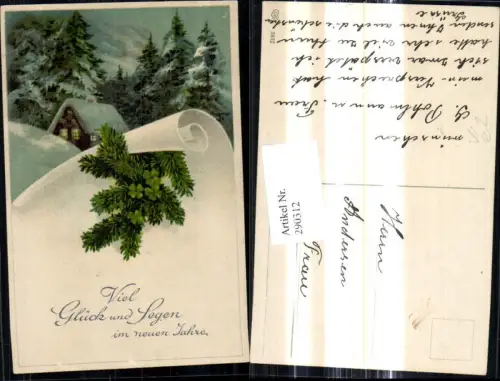 Viel
Glück und Segen
im neuen Jahre.
Artikel Nr.
290312
wünschen
G. Pohlmann u. Frau
mein Versprechen hab
ich zwar verspätet ich
hatte sehr viel zu thun
senden Ihnen auch die schönsten
Grüsse
Herrn
Andersen
Frau